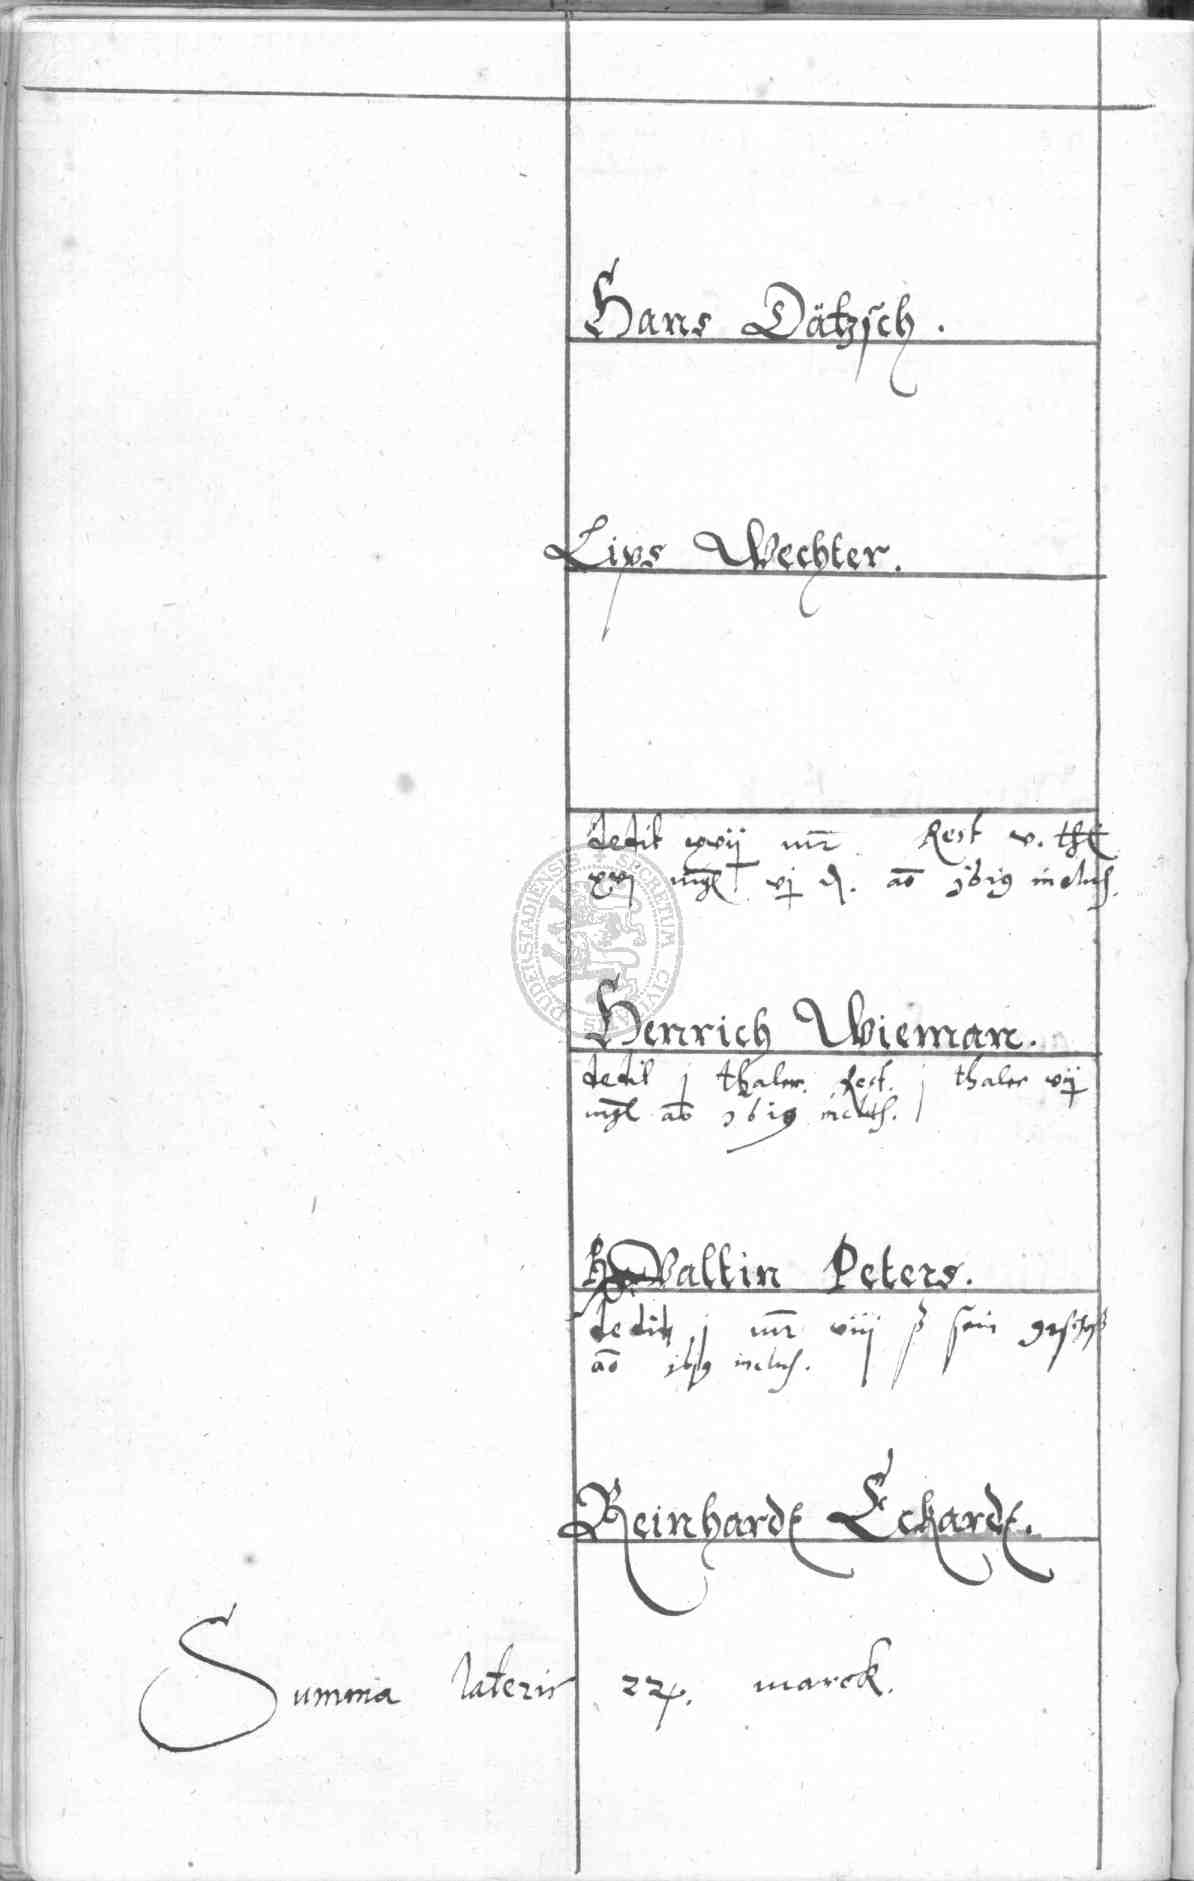 Hans Dätzsch.
Lips Wechter.
dedit xvij mr Rest v. thl
xvj mgl vj d. ao 1619 inclus.
Henrich Wieman.
dedit j thaler. Rest. j thaler vij
mgl ao 1619 inclus.
Valtin Peters.
dedit j mr viij ß sein geschoß
ao 1619 inclus.
Reinhardt Eckardt.
Summa lateris 22½. marck.
SECRETUM CIVITATIS DUDERSTADIENSIS